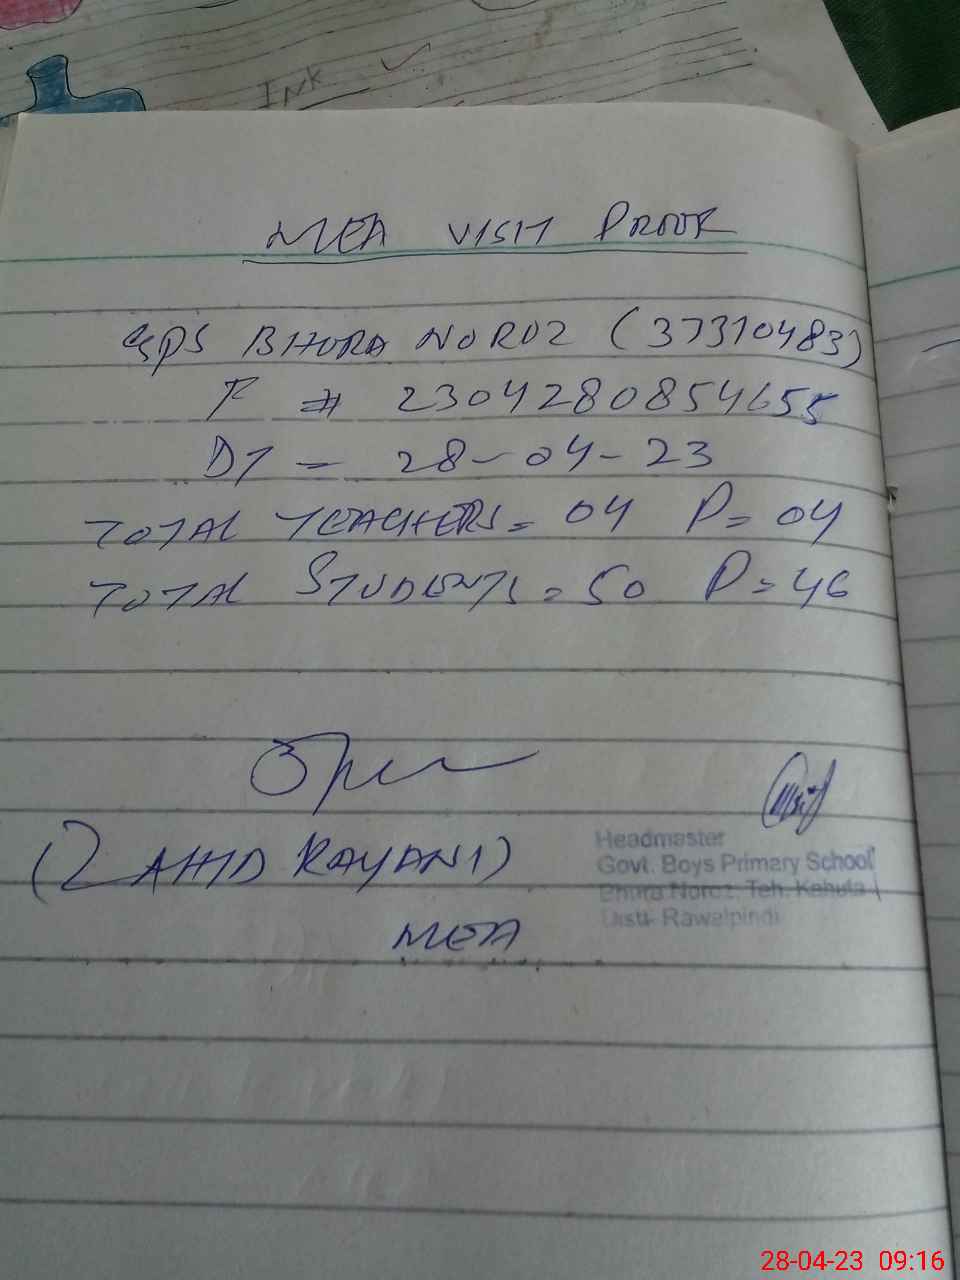 INK
MEA VISIT PROOF
GPS BHORA NOROZ (37310483)
F # 230428085 4655
DT - 28-04-23
TOTAL TEACHERS = 04 P = 04
TOTAL STUDENTS = 50 P = 46
(ZAHID KAYANI)
MEA
Headmaster
Govt. Boys Primary School
Bhura Noroz, Teh. Kahuta
Distt- Rawalpindi
28-04-23 09:16